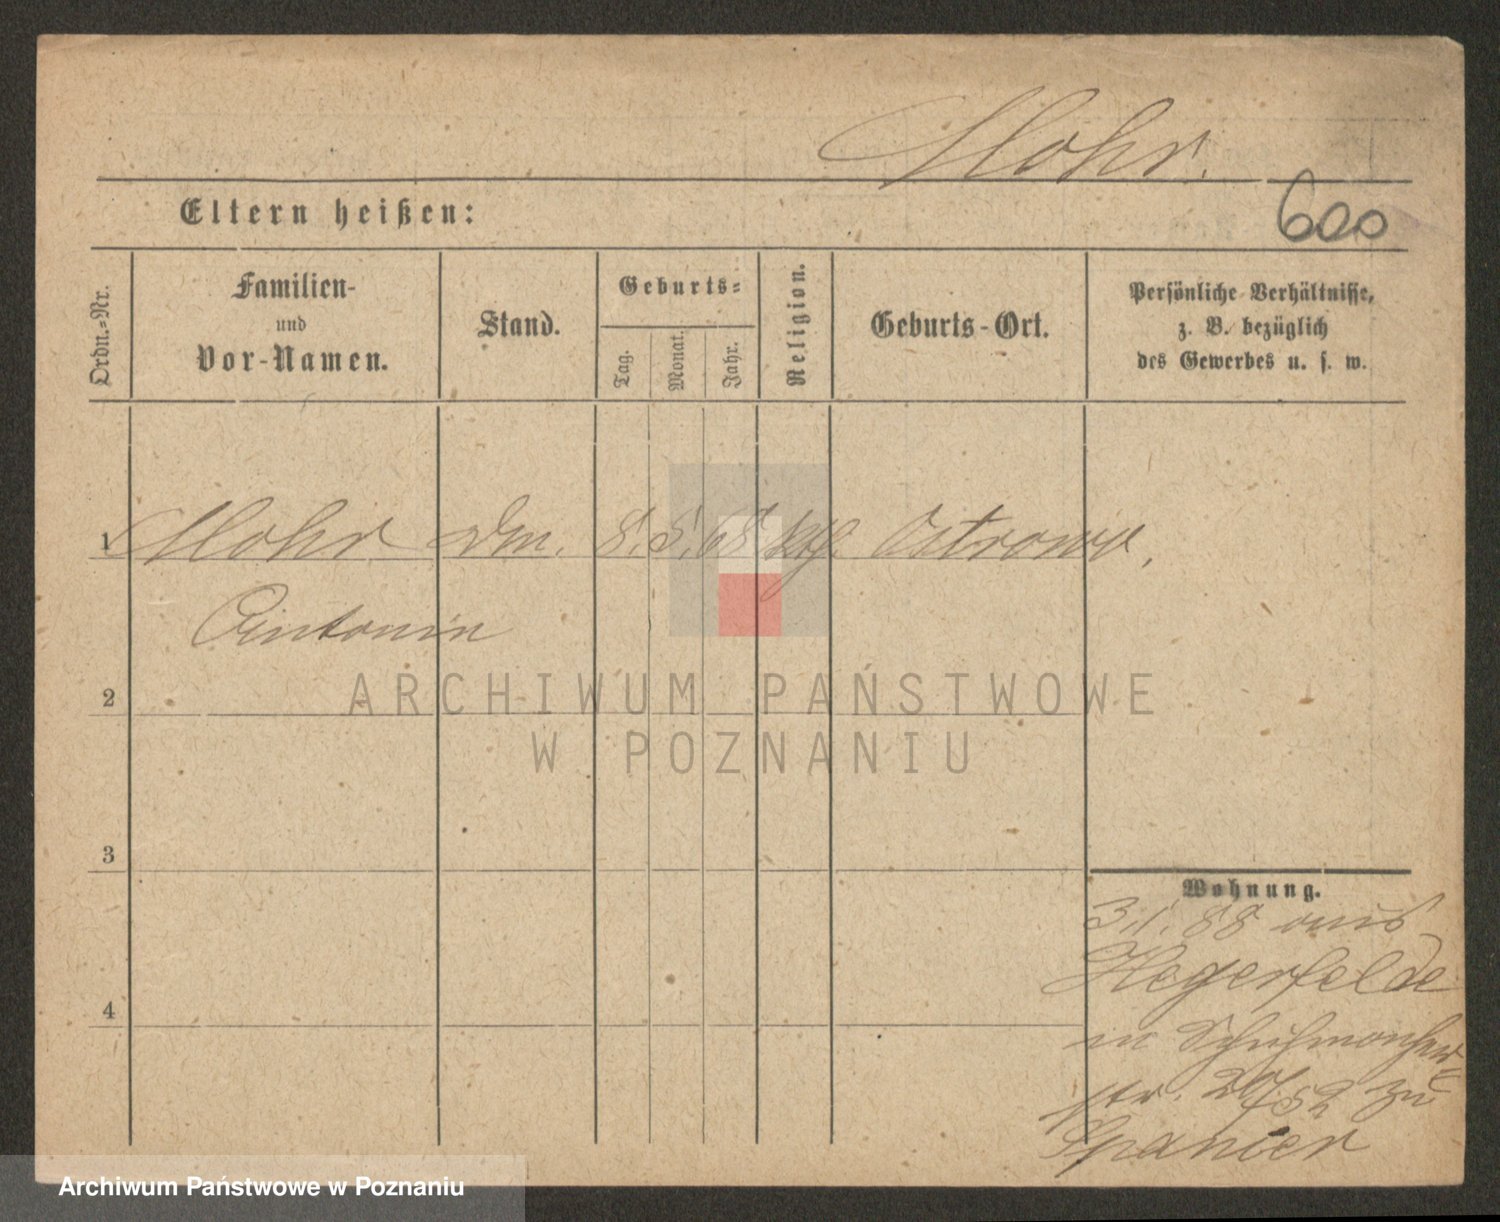 Mohr.
Eltern heißen:
600
Ordn.-Nr.
Familien-
und
Vor-Namen.
Stand.
Geburts-
Tag.
Monat.
Jahr.
Religion.
Geburts-Ort.
Persönliche Verhältnisse,
z. B. bezüglich
des Gewerbes u. s. w.
1 Mohr 8. 5. 68 kth. Ostrowo,
Antonin
2
3
4
Wohnung.
3.1.88 aus
Hegerfelde
in Schuhmacher
str. zu
Spanier
ARCHIWUM PAŃSTWOWE
W POZNANIU
Archiwum Państwowe w Poznaniu